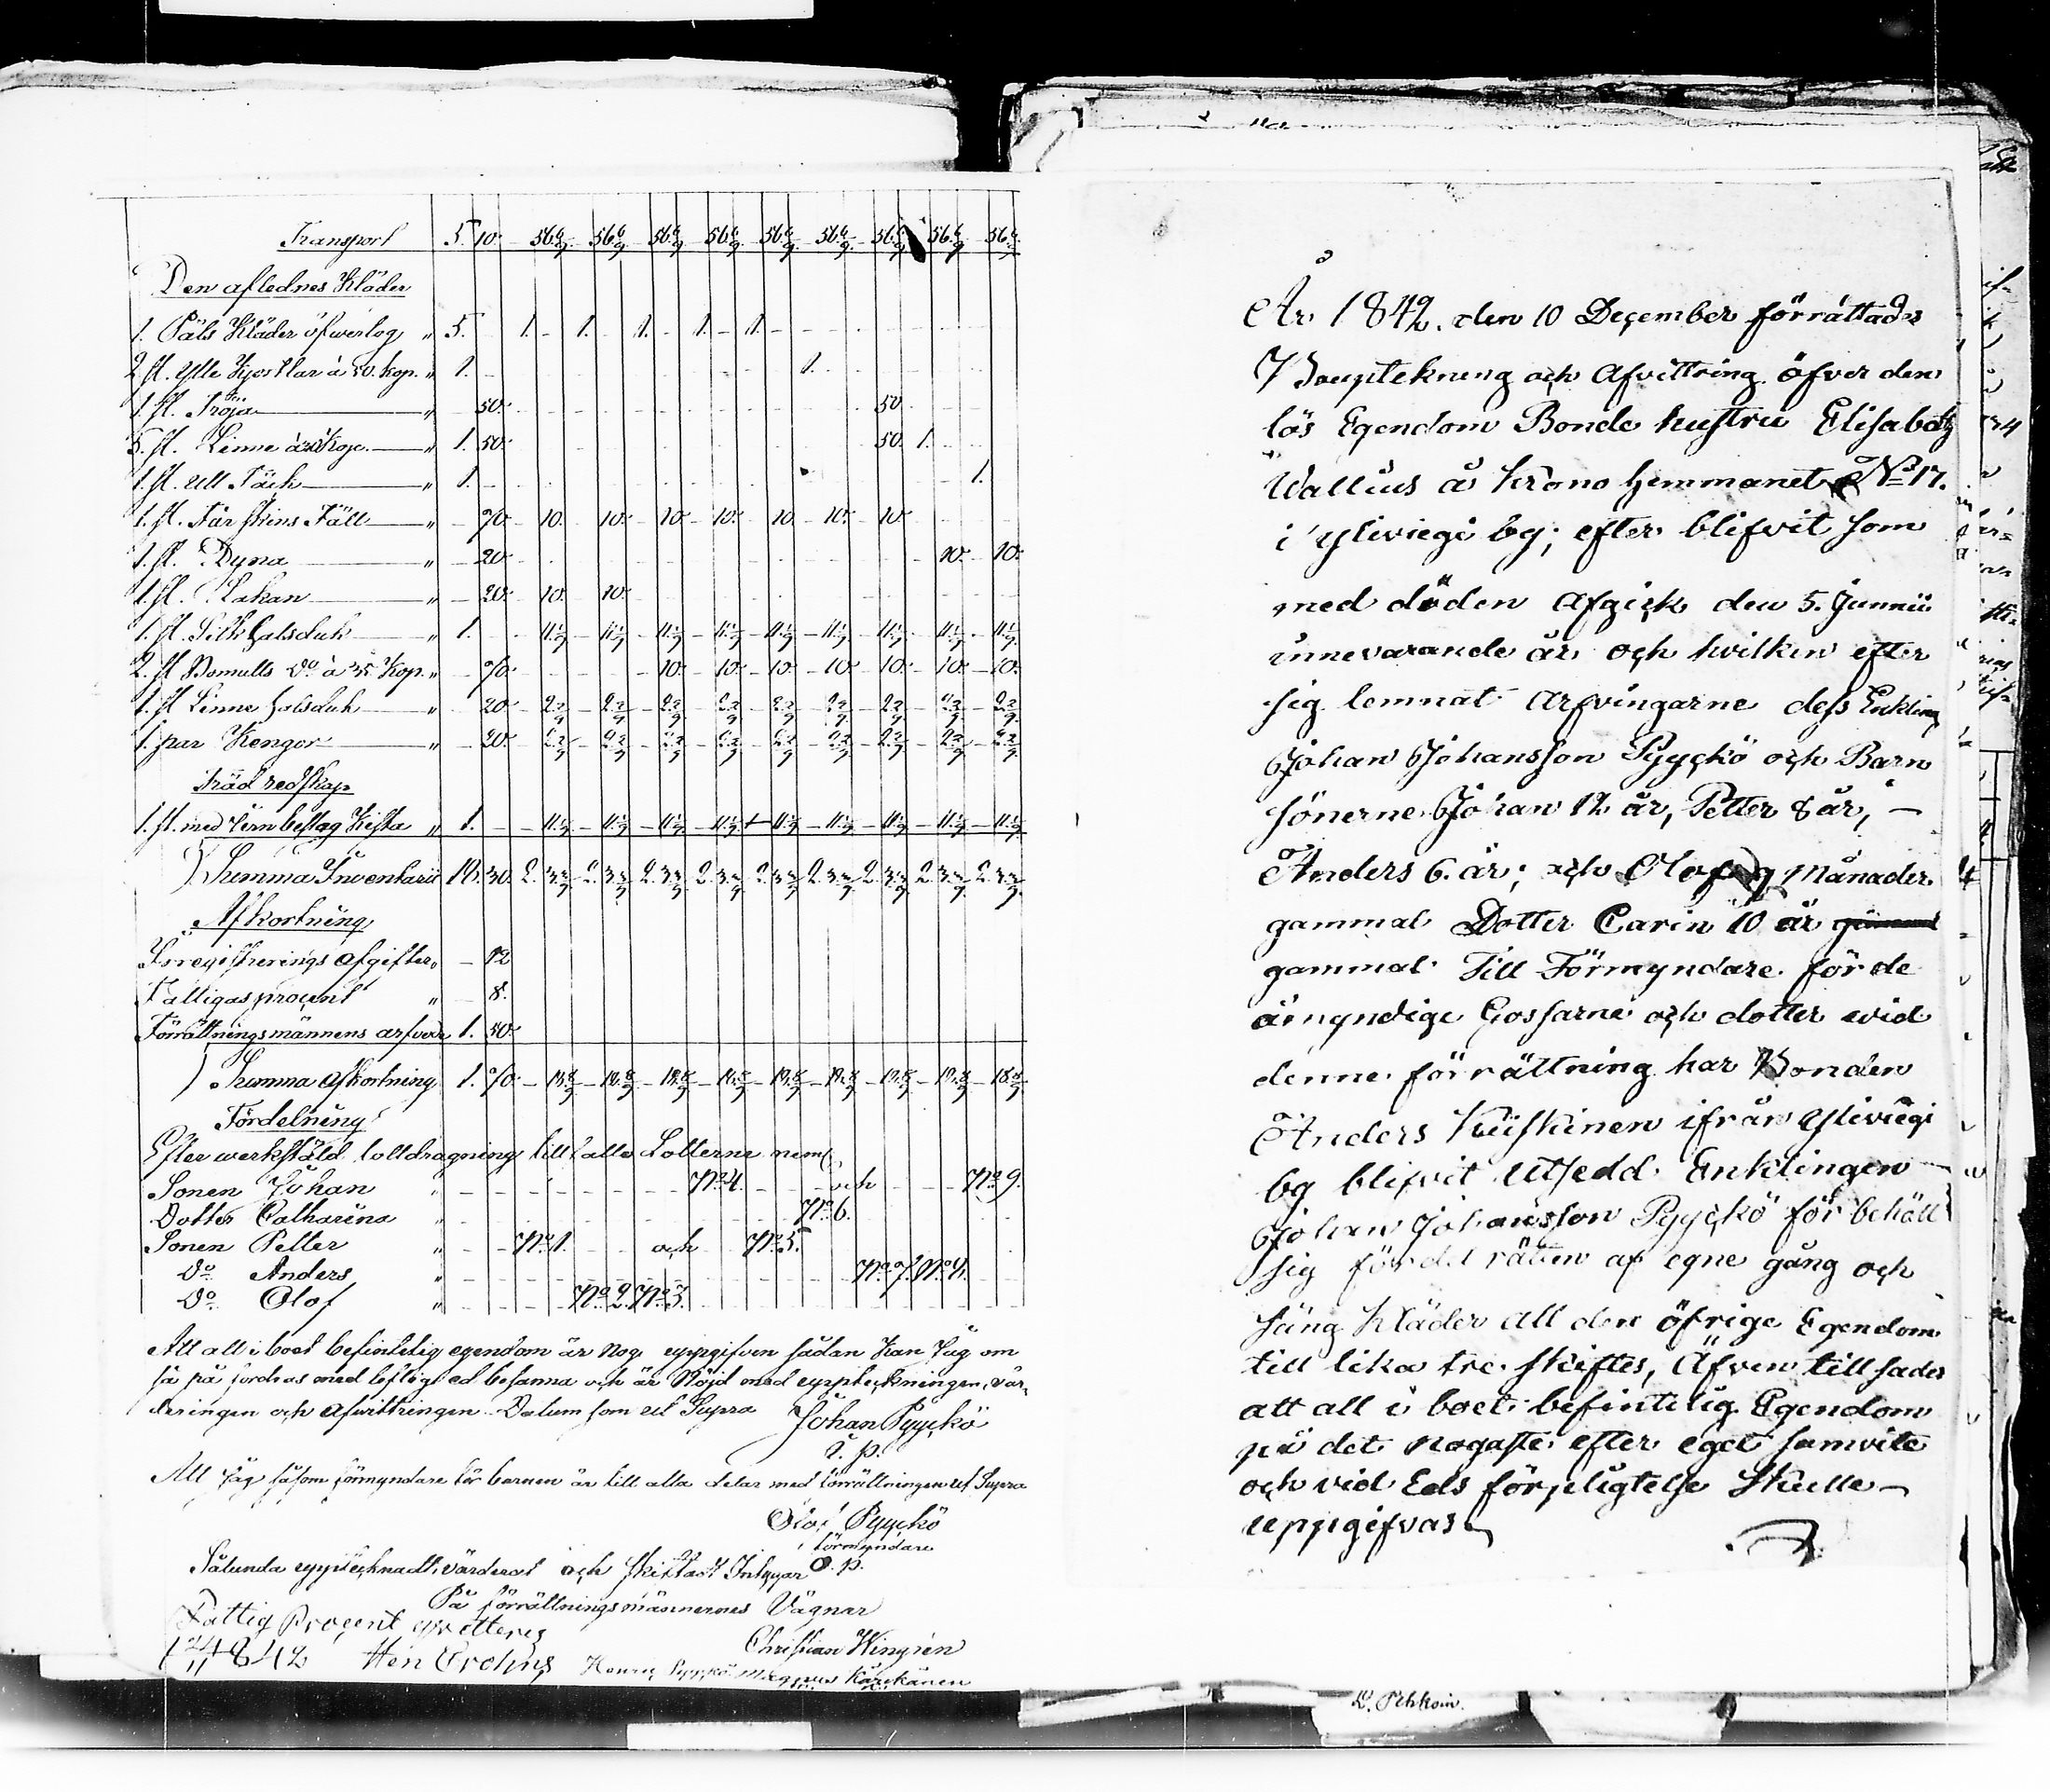 Transport 5. 10. 56.6/9 56.6/9 56.6/9 56.6/9 56.6/9 56.6/9 56.6/9 56.6/9 56.6/9
Den aflednes Kläder
1. Päls Kläder öfwerlog " 5. 1. 1. 1. 1. 1.
2 st. ylle Kjortlar à 50. Kop. " 1. 1.
1. st. Tröja " 50. 50.
5. st. Linne Kop. " 1. 50. 50. 1.
1. st. Ull Täck " 1. 1.
1. st. Får skins Fäll " 70. 10. 10. 10. 10. 10. 10. 10.
1. st. Dyna " 20. 10. 10.
1. st. Lakan " 20. 10. 10.
1. st. Silk halsduk " 1. 11.1/9 11.1/9 11.1/9 11.1/9 11.1/9 11.1/9 11.1/9 11.1/9 11.1/9
2. st Bomulls Do à 35 Kop. " 70. 10. 10. 10. 10. 10. 10. 10.
1. st Linne halsduk " 20. 2.2/9 2.2/9 2.2/9 2.2/9 2.2/9 2.2/9 2.2/9 2.2/9 2.2/9
1. par Kengor " 20. 2.2/9 2.2/9 2.2/9 2.2/9 2.2/9 2.2/9 2.2/9 2.2/9 2.2/9
Träd redskap
1. st. med Jern beslag Kista " 1. 11.1/9 11.1/9 11.1/9 11.1/9 11.1/9 11.1/9 11.1/9 11.1/9 11.1/9
Summa Inventarii 18. 30. 2. 3.3/9 2. 3.3/9 2. 3.3/9 2. 3.3/9 2. 3.3/9 2. 3.3/9 2. 3.3/9 2. 3.3/9 2. 3.3/9
Afkortning
Inregistrerings afgifter 12
Fattigas proçent " 8.
Förrättningsmännens arfvode 1. 50.
Summa afkortning 1. 70. 18.8/9 18.8/9 18.8/9 18.8/9 18.8/9 18.8/9 18.8/9 18.8/9 18.8/9
Fördelning
Efter werkstäld lottdragning tillfalla Lotterne neml.
Sonen Johan No 4. och No 9.
Dotter Catharina No 6.
Sonen Petter " No 1. och No 5.
Do Anders " No 7. No
Do Olof " No 2. No 3.
Att all i boet befintelig egendom är nog uppgifven sådan Kan Jag om
så på fordras med liflig ed besanna och är Nöjd med uppteckningen, vär-
deringen och afwittringen. Datum som ut Supra Johan Pyyckö
Att Jag såsom förmyndare för barnen är till alla delar med förrättningen ut Supra
Olof Pyyckö
förmyndare
Sålunda upptecknadt, värderat och skiftadt Intygar
På förrättningsmännernes Vägnar
Fattig Proçent
Christian Wingren
1842 Magnus Kärckänen
År 1842. den 10 Deçember förrättades
Bouptekning och Afvittring öfver den
lös Egendom Bonde hustru Elisabetz
Wallius å Krono hemmanet No 17.
i Ylivieçi by; efter blifvit som
med döden Afgick den 5. Junnii
innevarande år och hvilken efter
sig lemnat Arfvingarne dess Enkling
Johan Johansson Pyyckö och Barn
sönerne Johan 12 år, Petter 8 år, –
Anders 6. år; och Olof 9 Månader
gammal Dotter Carin 10 år
gammal Till Förmyndare för de
omyndige Gossarne och dotter wid
denne förrättning har Bonden
Anders Kuiskinen ifrån Ylivieçi
by blifvit Utsedd. Enklingen
Johan Johansson Pyyckö för behölt
sig fördel rätten af egne gång och
säng Kläder all den öfrige Egendom
till lika tre skiftes, Äfven till sades
att all i boet befintelig Egendom
på det nogaste efter eget samvite
och vid Eds förpligtelse Skulle
uppgifvas